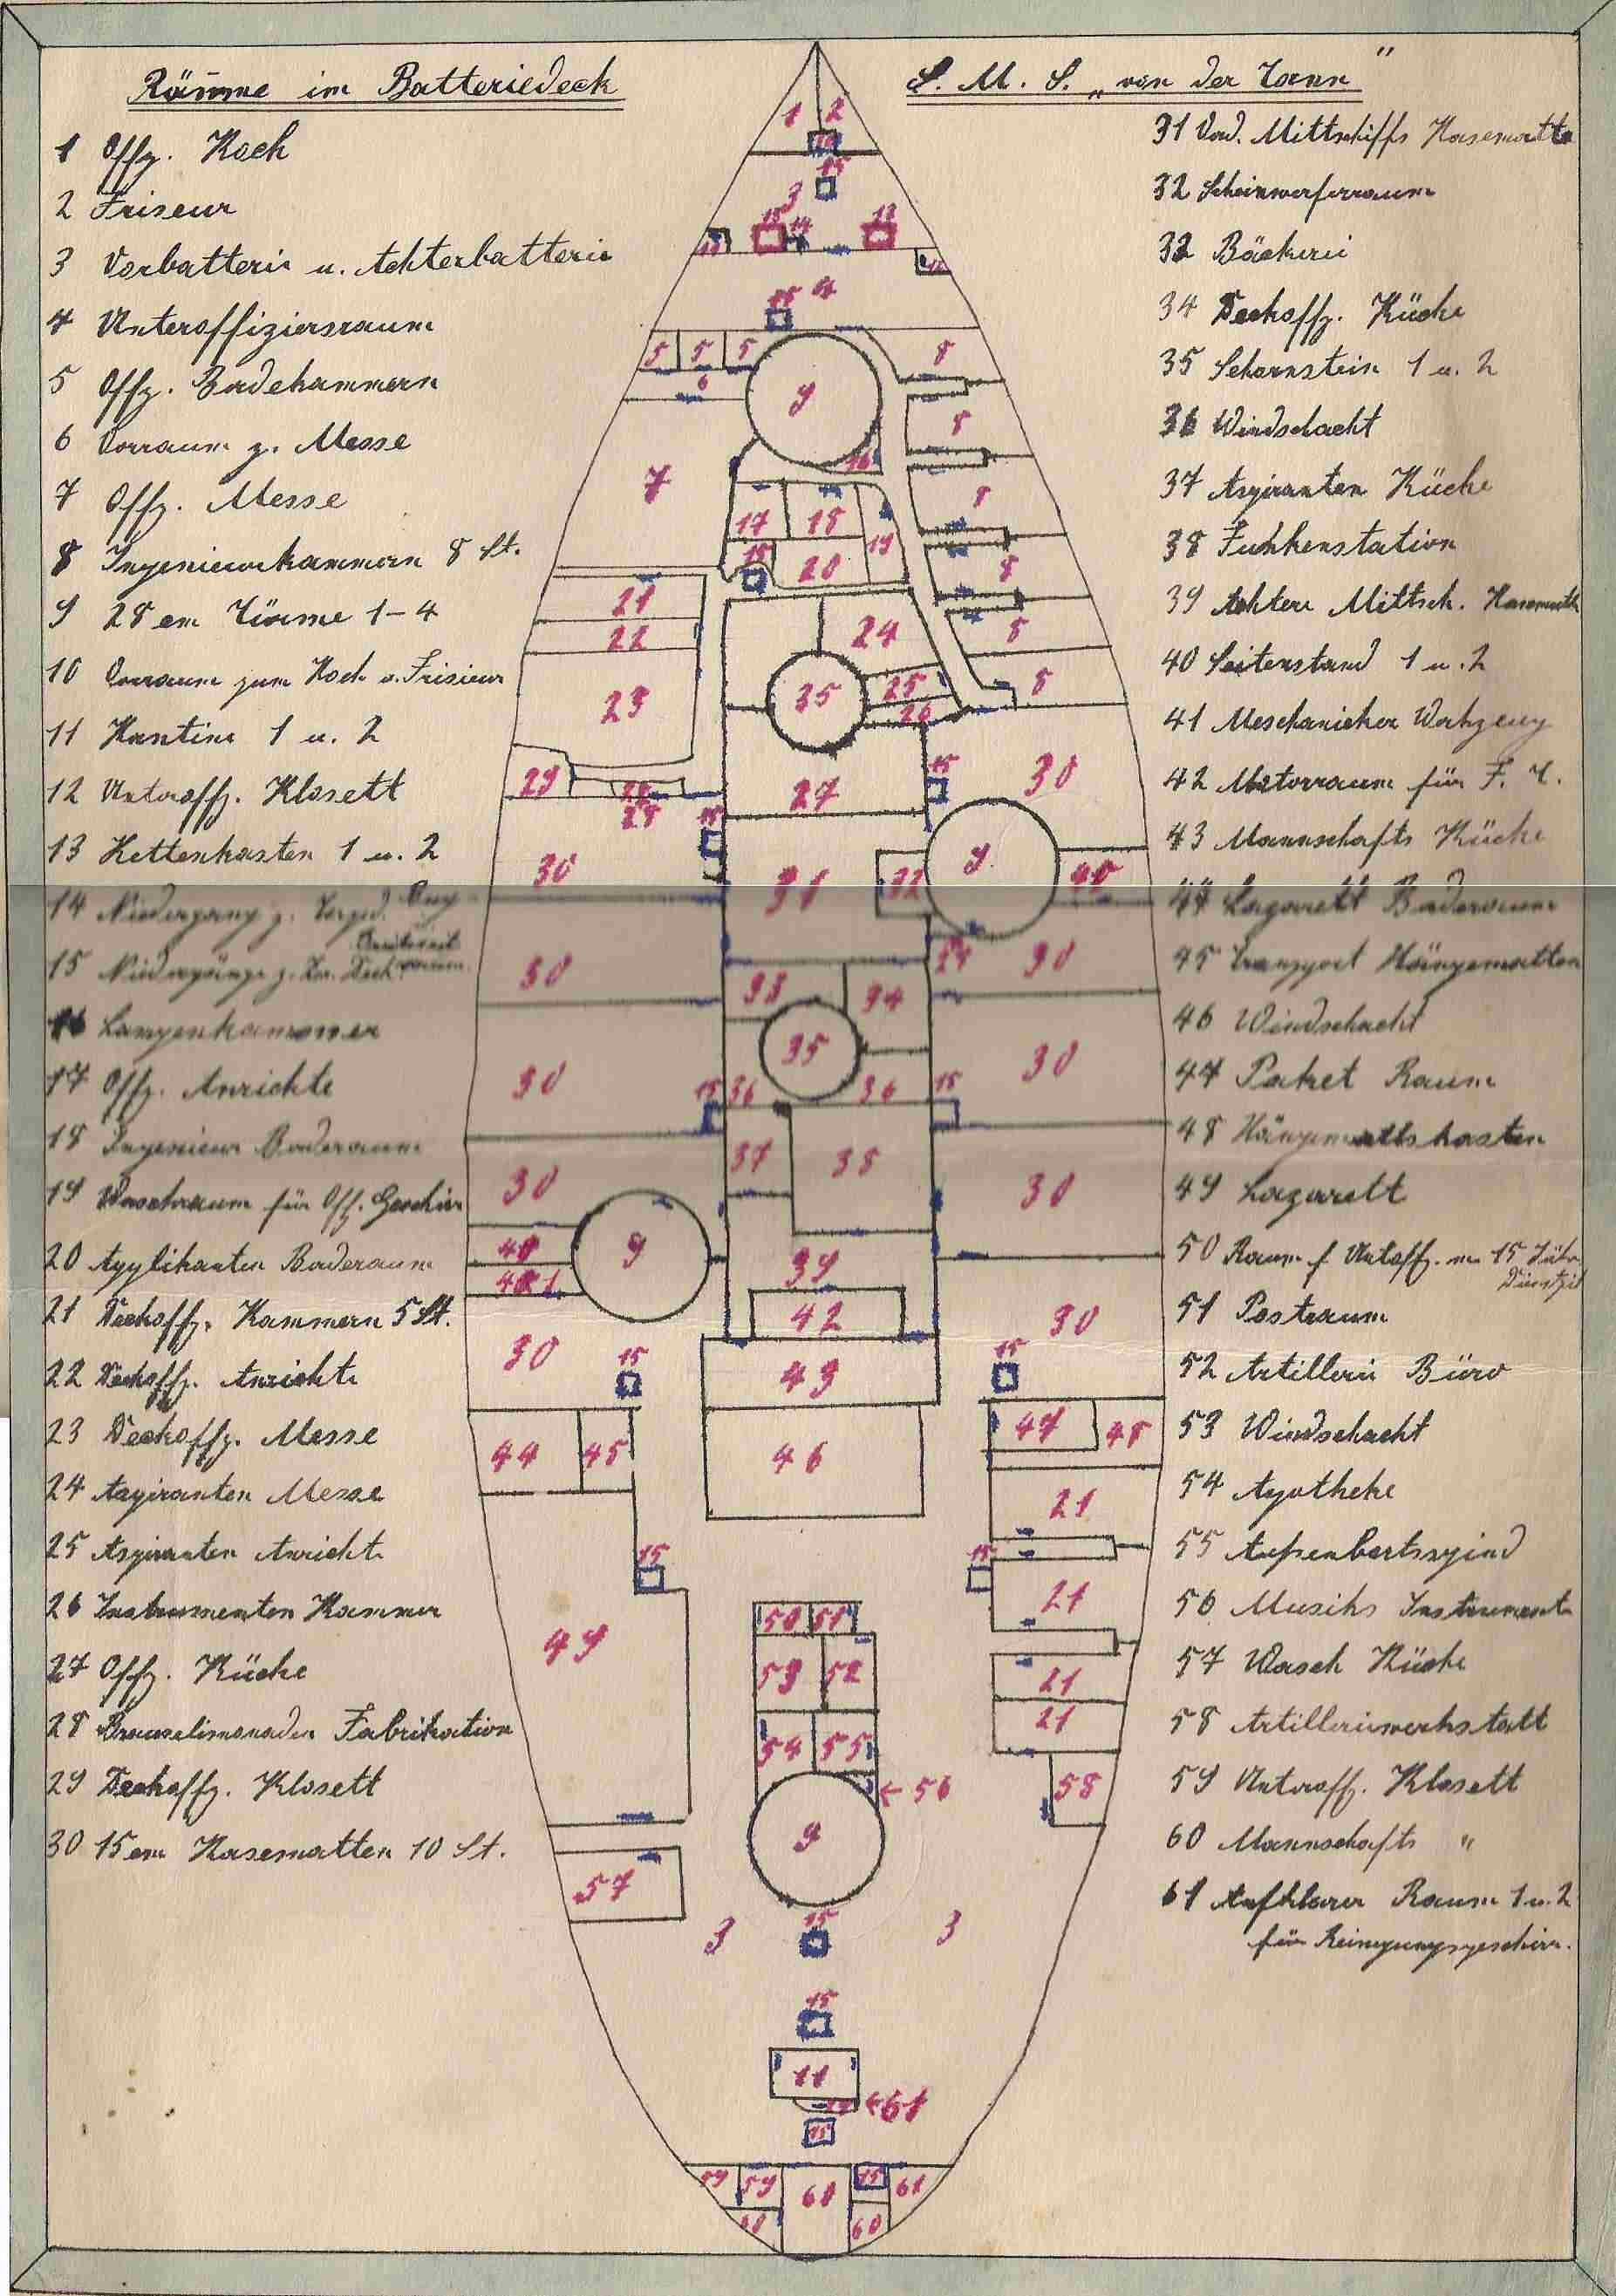 Räume im Batteriedeck
S. M. S. „von der Tann"
1 Offz. Koch
2 Friseur
3 Vorbatterie u. Achterbatterie
4 Unteroffiziersraum
5 Offz. Badekammern
6 Vorraum z. Messe
7 Offz. Messe
8 Ingenieurkammern 8 St.
9 28 cm Türme 1-4
10 Vorraum zum Koch u. Frisieur
11 Kantine 1 u. 2
12 Unteroffz. Klosett
13 Kettenkasten 1 u. 2
14 Niedergang z. Torped. Bug
Breitseit
15 Niedergänge z. Zw. Deck raum
16 Lampenkammer
17 Offz. Anrichte
18 Ingenieur Baderaum
19 Waschraum für Off. Geschirr
20 Applikanten Baderaum
21 Deckoffz. Kammern 5 St.
22 Deckoffz. Anrichte
23 Deckoffz. Messe
24 Aspiranten Messe
25 Aspiranten Anricht.
26 Instrumenten Kammer
27 Offz. Küche
28 Brauselimonaden Fabrikation
29 Deckoffz. Klosett
30 15 cm Kasematten 10 St.
31 Vord. Mittschiffs Kasematte
32 Scheinwerferraum
33 Bäckerei
34 Deckoffz. Küche
35 Schornstein 1 u. 2
36 Windschacht
37 Aspiranten Küche
38 Funkenstation
39 Achtere Mittsch. Kasematte
40 Seitenstand 1 u. 2
41 Meschanicker Werkzeug
42 Motorraum für F. T.
43 Mannschafts Küche
44 Lazarett Baderaum
45 Transport Hängematten
46 Windschacht
47 Paket Raum
48 Hängemattskasten
49 Lazarett
50 Raum f. Untoffz. m 15 Jähr.
Dienstzeit
51 Postraum
52 Artillerie Büro
53 Windschacht
54 Apotheke
55 Außenbortsspind
56 Musiks Instrument
57 Wasch Küche
58 Artilleriewerkstatt
59 Unteroff. Klosett
60 Mannschafts "
61 Aufklarer Raum 1 u. 2
für Reinigungsgeschirr.
1 2
10
15
3
13 15 14 13
12
15 4
5 5 5 8
6
9
8
7 16
8
17 18 19
15 20 8
21
22 24 8
23 35 25 8
26
29 15 30
28 27
28 15
30 31 32 9 40
30 33 34 29 30
30 35 30
15 36 36 15
37 38
30 30
40 9
41 39
42
30 15 43 15 30
44 45 46 47 48
21
15 15
49 21
50 51
53 52 21
21
54 55
← 56 58
9
57
3 15 3
15
11
← 61
15
59 59 60 15 61
60 60